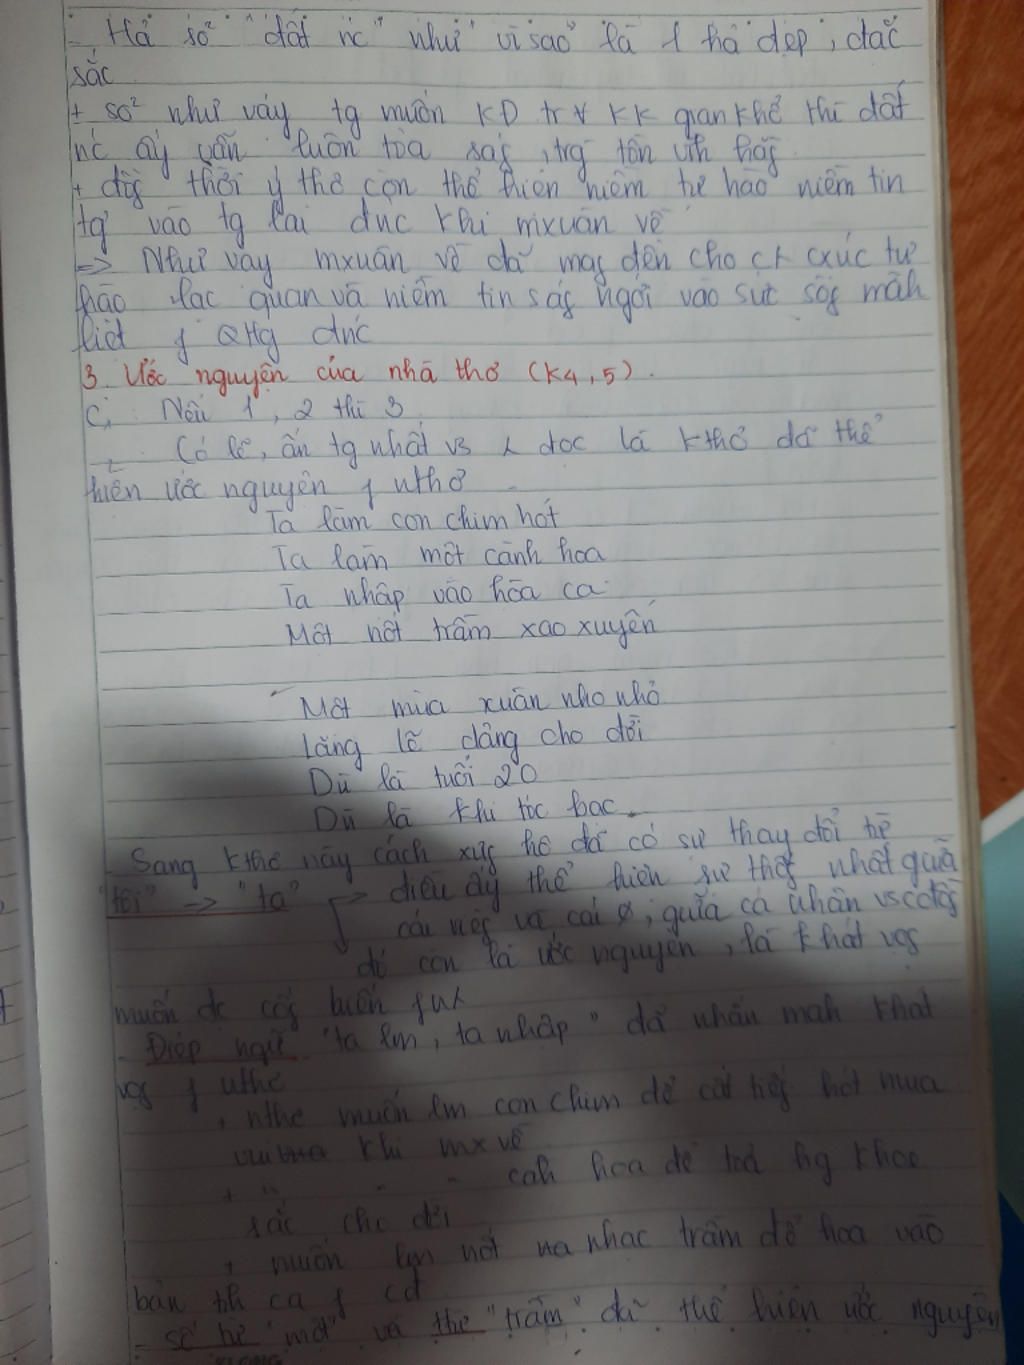 - H/ả so² "đất nc" như "vì sao" là 1 h/ả đẹp, đặc
sắc
+ so² như vậy tg muốn KĐ tr ∀ KK gian khổ thì đất
nc ấy vẫn luôn tỏaság, trg tồn vĩnh hằg
+ đồg thời ý thơ còn thể hiện niềm tự hào niềm tin
tg vào tg lai đnc khi mxuân về
=> Như vậy mxuân về đã mag đến cho ct cxúc tự
hào lạc quan và niềm tin ság ngời vào sức sốg mãh
liệt f QHg đnc
3. Ước nguyện của nhà thơ (K4,5).
C: Nếu 1, 2 thì 3
- Có lẽ, ấn tg nhất vs đọc là khthơ đã thể
hiện ước nguyện f nthơ
Ta làm con chim hót
Ta làm một cành hoa
Ta nhập vào hòa ca
Một nốt trầm xao xuyến
Một mùa xuân nho nhỏ
Lặng lẽ dâng cho đời
Dù là tuổi 20
Dù là khi tóc bạc
- Sang kthơ này cách xưg hô đã có sự thay đổi từ
"tôi" -> "ta" -> điều ấy thể hiện sự thốg nhất giữa
cái riêg và cái, giữa cá nhân vs cđồg
đó còn là ước nguyện, là khát vọg
muốn đc cốg hiến f
- Điệp ngữ "ta lm, ta nhập" đã nhấn mạh khát
vọg f nthơ
+ nthơ muốn lm con chim để cất tiếg hót mua
vui khi mx về
+ " - - càh hoa để toả hg khoe
sắc cho đời
+ muốn lm nốt nhạc trầm để hòa vào
bản th ca f cđ
- số từ "một" và "trầm" đã thể hiện ước nguyện